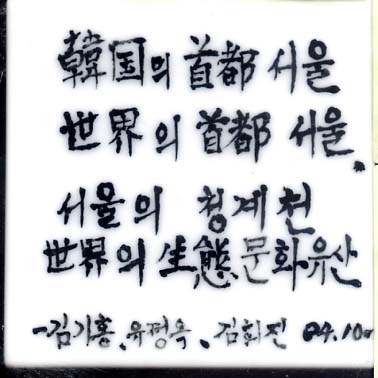 韓国의 首都 서울
世界의 首都 서울.
서울의 청계천
世界의 生態문화유산
-김기홍、유평옥、김휘진 04.10.